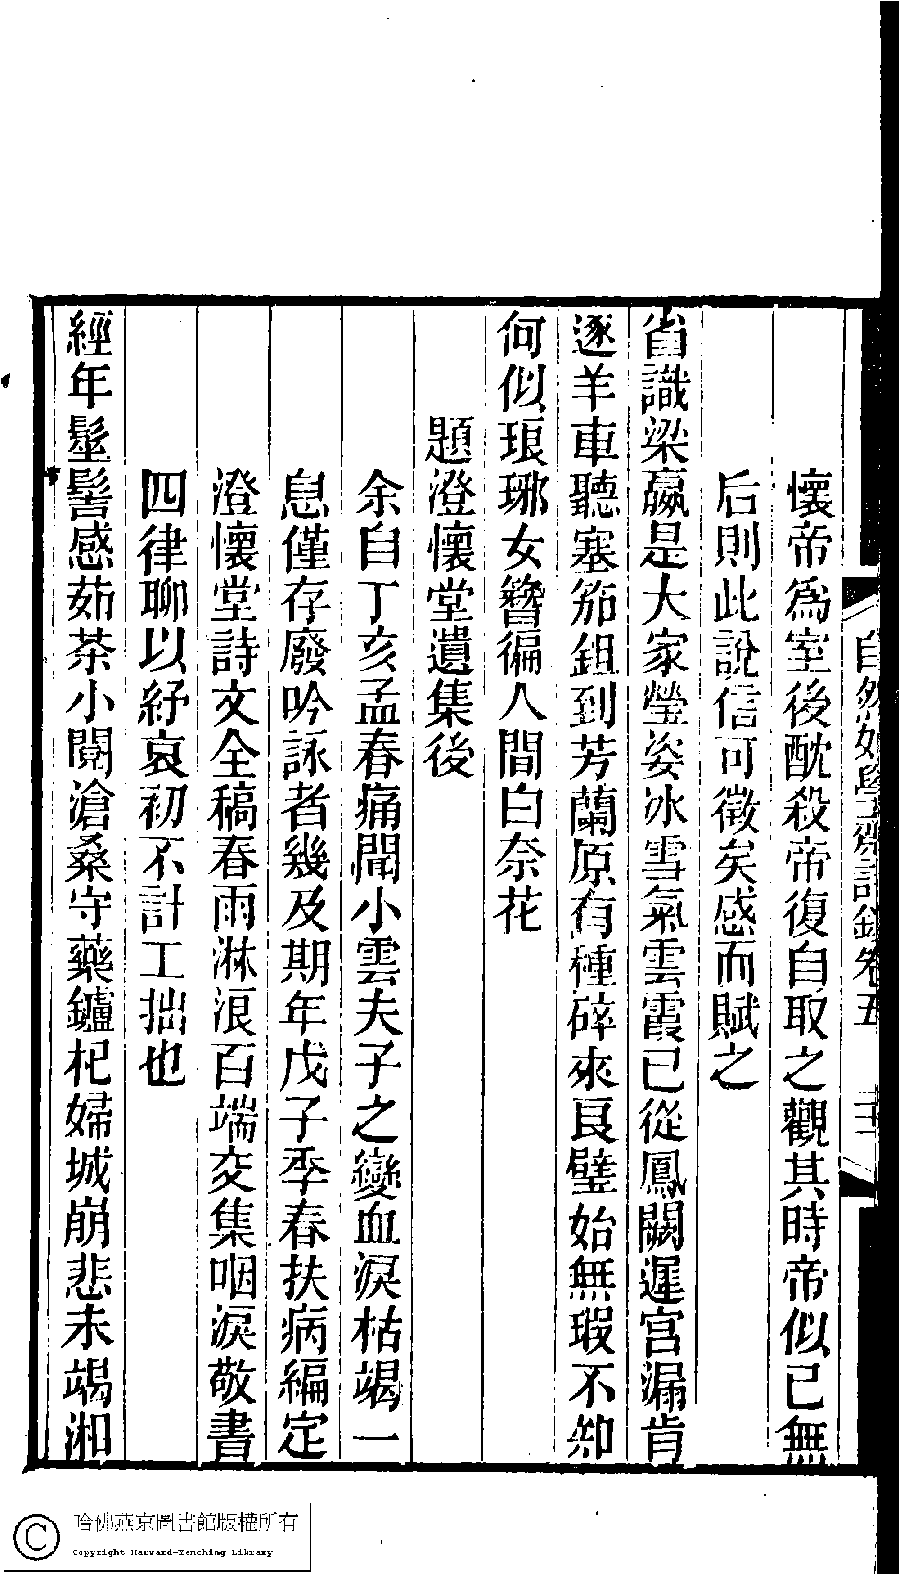 自然好學齋詩鈔卷五
懷帝爲室後酖殺帝復自取之觀其時帝似已無
后則此說信可徵矣感而賦之
省識梁嬴是大家瑩姿冰雪氣雲霞已從鳳闕遲宮漏肯
逐羊車聽塞笳鉏到芳蘭原有種碎來良璧始無瑕不知
何似琅琊女簪徧人間白奈花
題澄懷堂遺集後
余自丁亥孟春痛聞小雲夫子之變血淚枯竭一
息僅存廢吟詠者幾及期年戊子季春扶病編定
澄懷堂詩文全稿春雨淋浪百端交集咽淚敬書
四律聊以紓哀初不計工拙也
經年髽髻感茹荼小閱滄桑守藥鑪杞婦城崩悲未竭湘
哈佛燕京圖書館版權所有
Copyright Harvard-Yenching Library